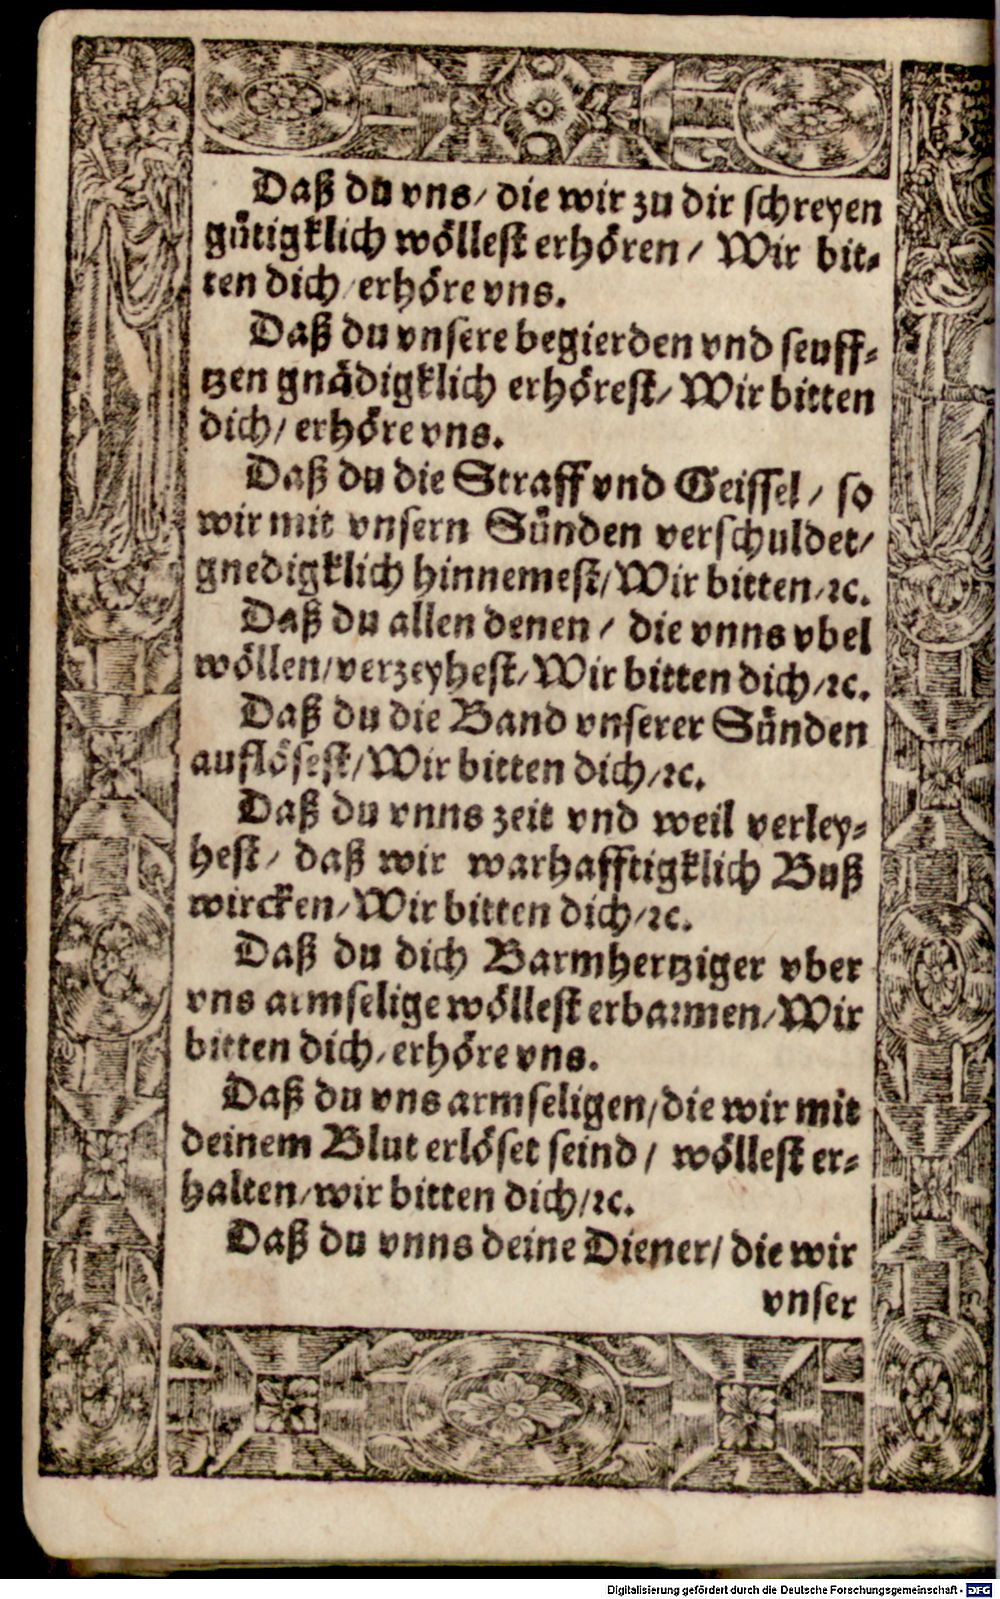 Daß du vns/ die wir zu dir schreyen
gütigklich wöllest erhören/ Wir bit-
ten dich/ erhöre vns.
Daß du vnsere begierden vnd seuff-
tzen gnädigklich erhörest/ Wir bitten
dich/ erhöre vns.
Daß du die Straff vnd Geissel/ so
wir mit vnsern Sünden verschuldet/
gnedigklich hinnemest/ Wir bitten/ ꝛc.
Daß du allen denen/ die vnns vbel
wöllen/ verzeyhest/ Wir bitten dich/ ꝛc.
Daß du die Band vnserer Sünden
auflösest/ Wir bitten dich/ ꝛc.
Daß du vnns zeit vnd weil verley-
hest/ daß wir warhafftigklich Buß
wircken/ Wir bitten dich/ ꝛc.
Daß du dich Barmhertziger vber
vns armselige wöllest erbarmen/ Wir
bitten dich/ erhöre vns.
Daß du vns armseligen/ die wir mit
deinem Blut erlöset seind/ wöllest er-
halten/ wir bitten dich/ ꝛc.
Daß du vnns deine Diener/ die wir
vnser
Digitalisierung gefördert durch die Deutsche Forschungsgemeinschaft - DFG